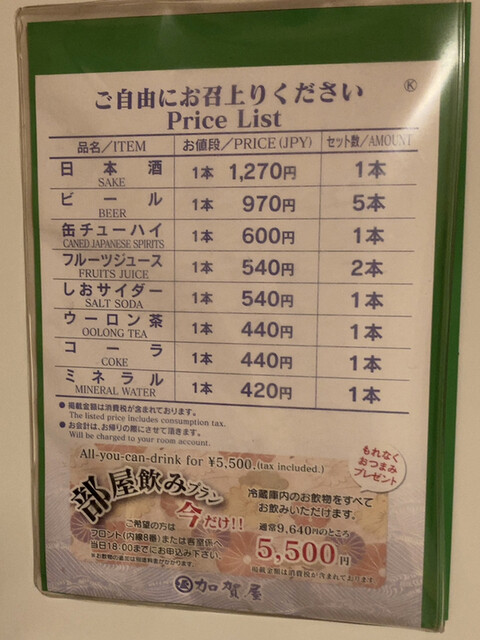 Ⓚ
ご自由にお召上りください
Price List
品名/ITEM お値段/PRICE(JPY) セット数/AMOUNT
日本酒 1本 1,270円 1本
SAKE
ビール 1本 970円 5本
BEER
缶チューハイ 1本 600円 1本
CANED JAPANESE SPIRITS
フルーツジュース 1本 540円 2本
FRUITS JUICE
しおサイダー 1本 540円 1本
SALT SODA
ウーロン茶 1本 440円 1本
OOLONG TEA
コーラ 1本 440円 1本
COKE
ミネラル 1本 420円 1本
MINERAL WATER
●掲載金額は消費税が含まれております。
The listed price includes consumption tax.
●お会計は、お帰りの際にさせて頂きます。
Will be charged to your room account.
All-you-can-drink for ¥5,500.(tax included.)
もれなく
おつまみ
プレゼント
部屋飲みプラン
今だけ!!
ご希望の方は
フロント(内線8番)または客室係へ
当日18:00までにお申込み下さい。
冷蔵庫内のお飲物をすべて
お飲みいただけます。
通常9,640円のところ
5,500円
掲載金額は消費税が含まれております
加賀屋